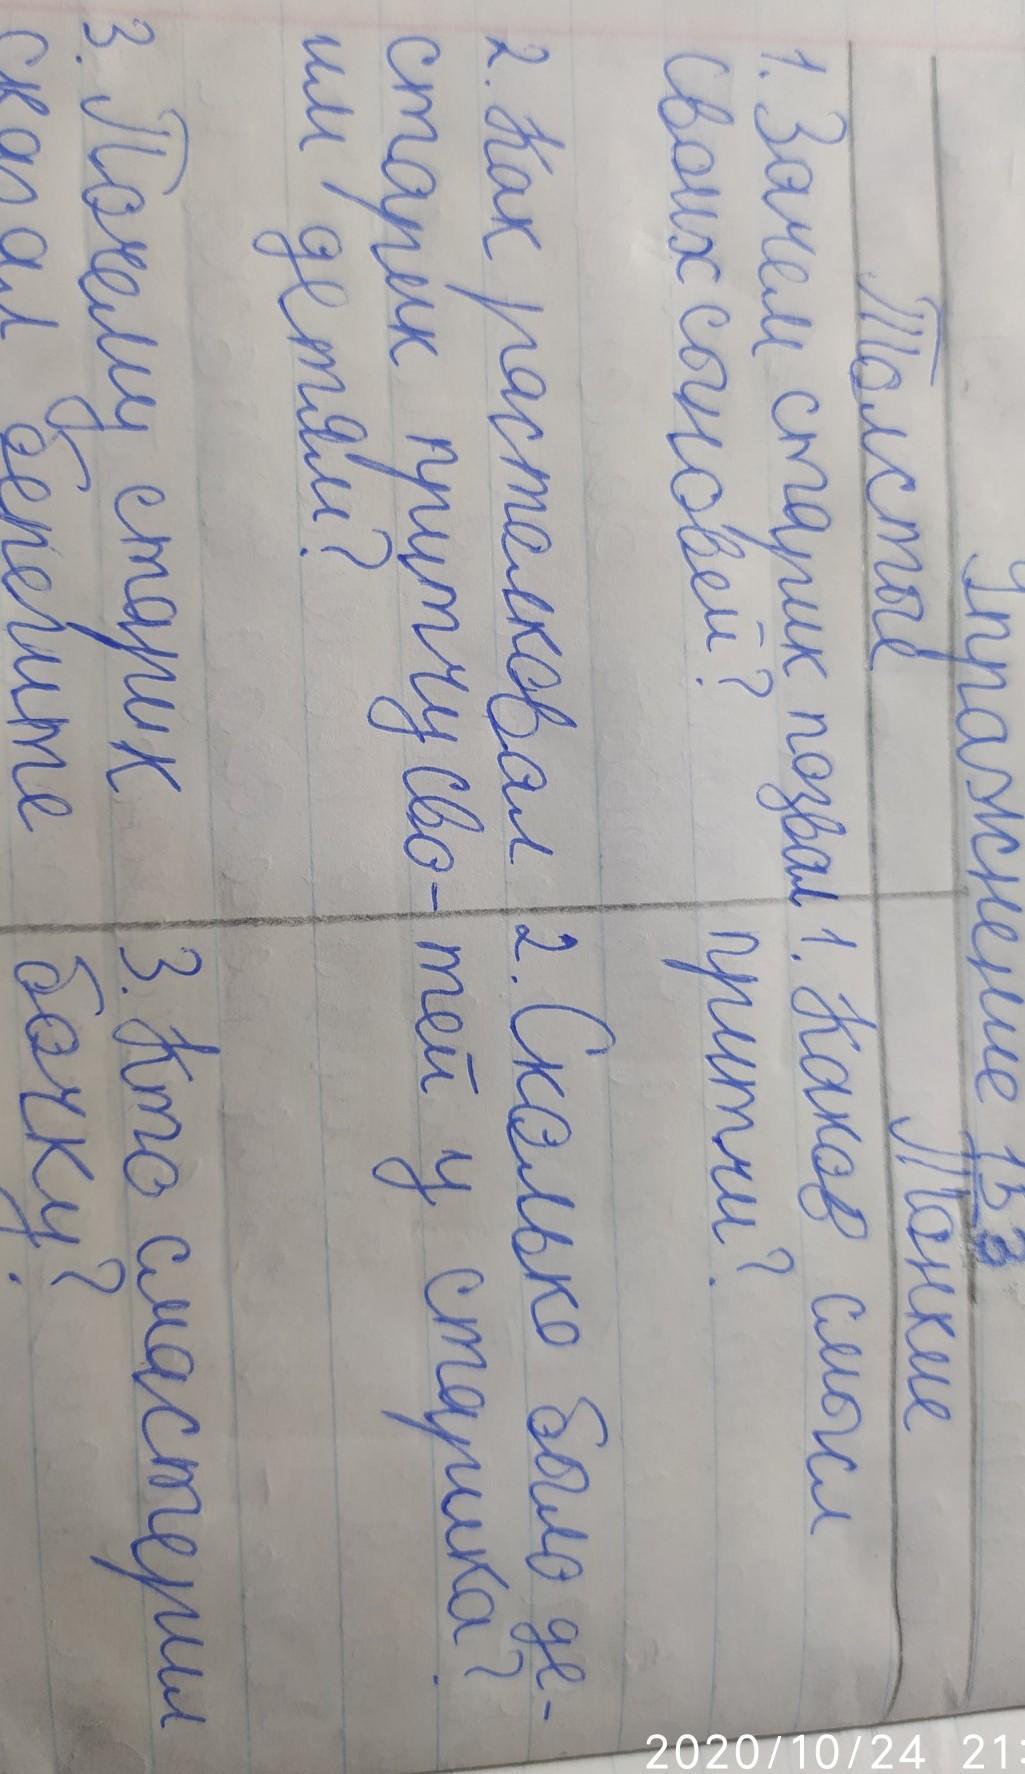 Упражнение 153
Толстые Тонкие
1. Зачем старик позвал
своих сыновей?
2. Как растолковал
старик притчу сво-
им детям?
3. Почему старик
сказал берегите
1. Каков смысл
притчи?
2. Сколько было де-
тей у старика?
3. Кто смастерил
бочку?
2020/10/24 21: